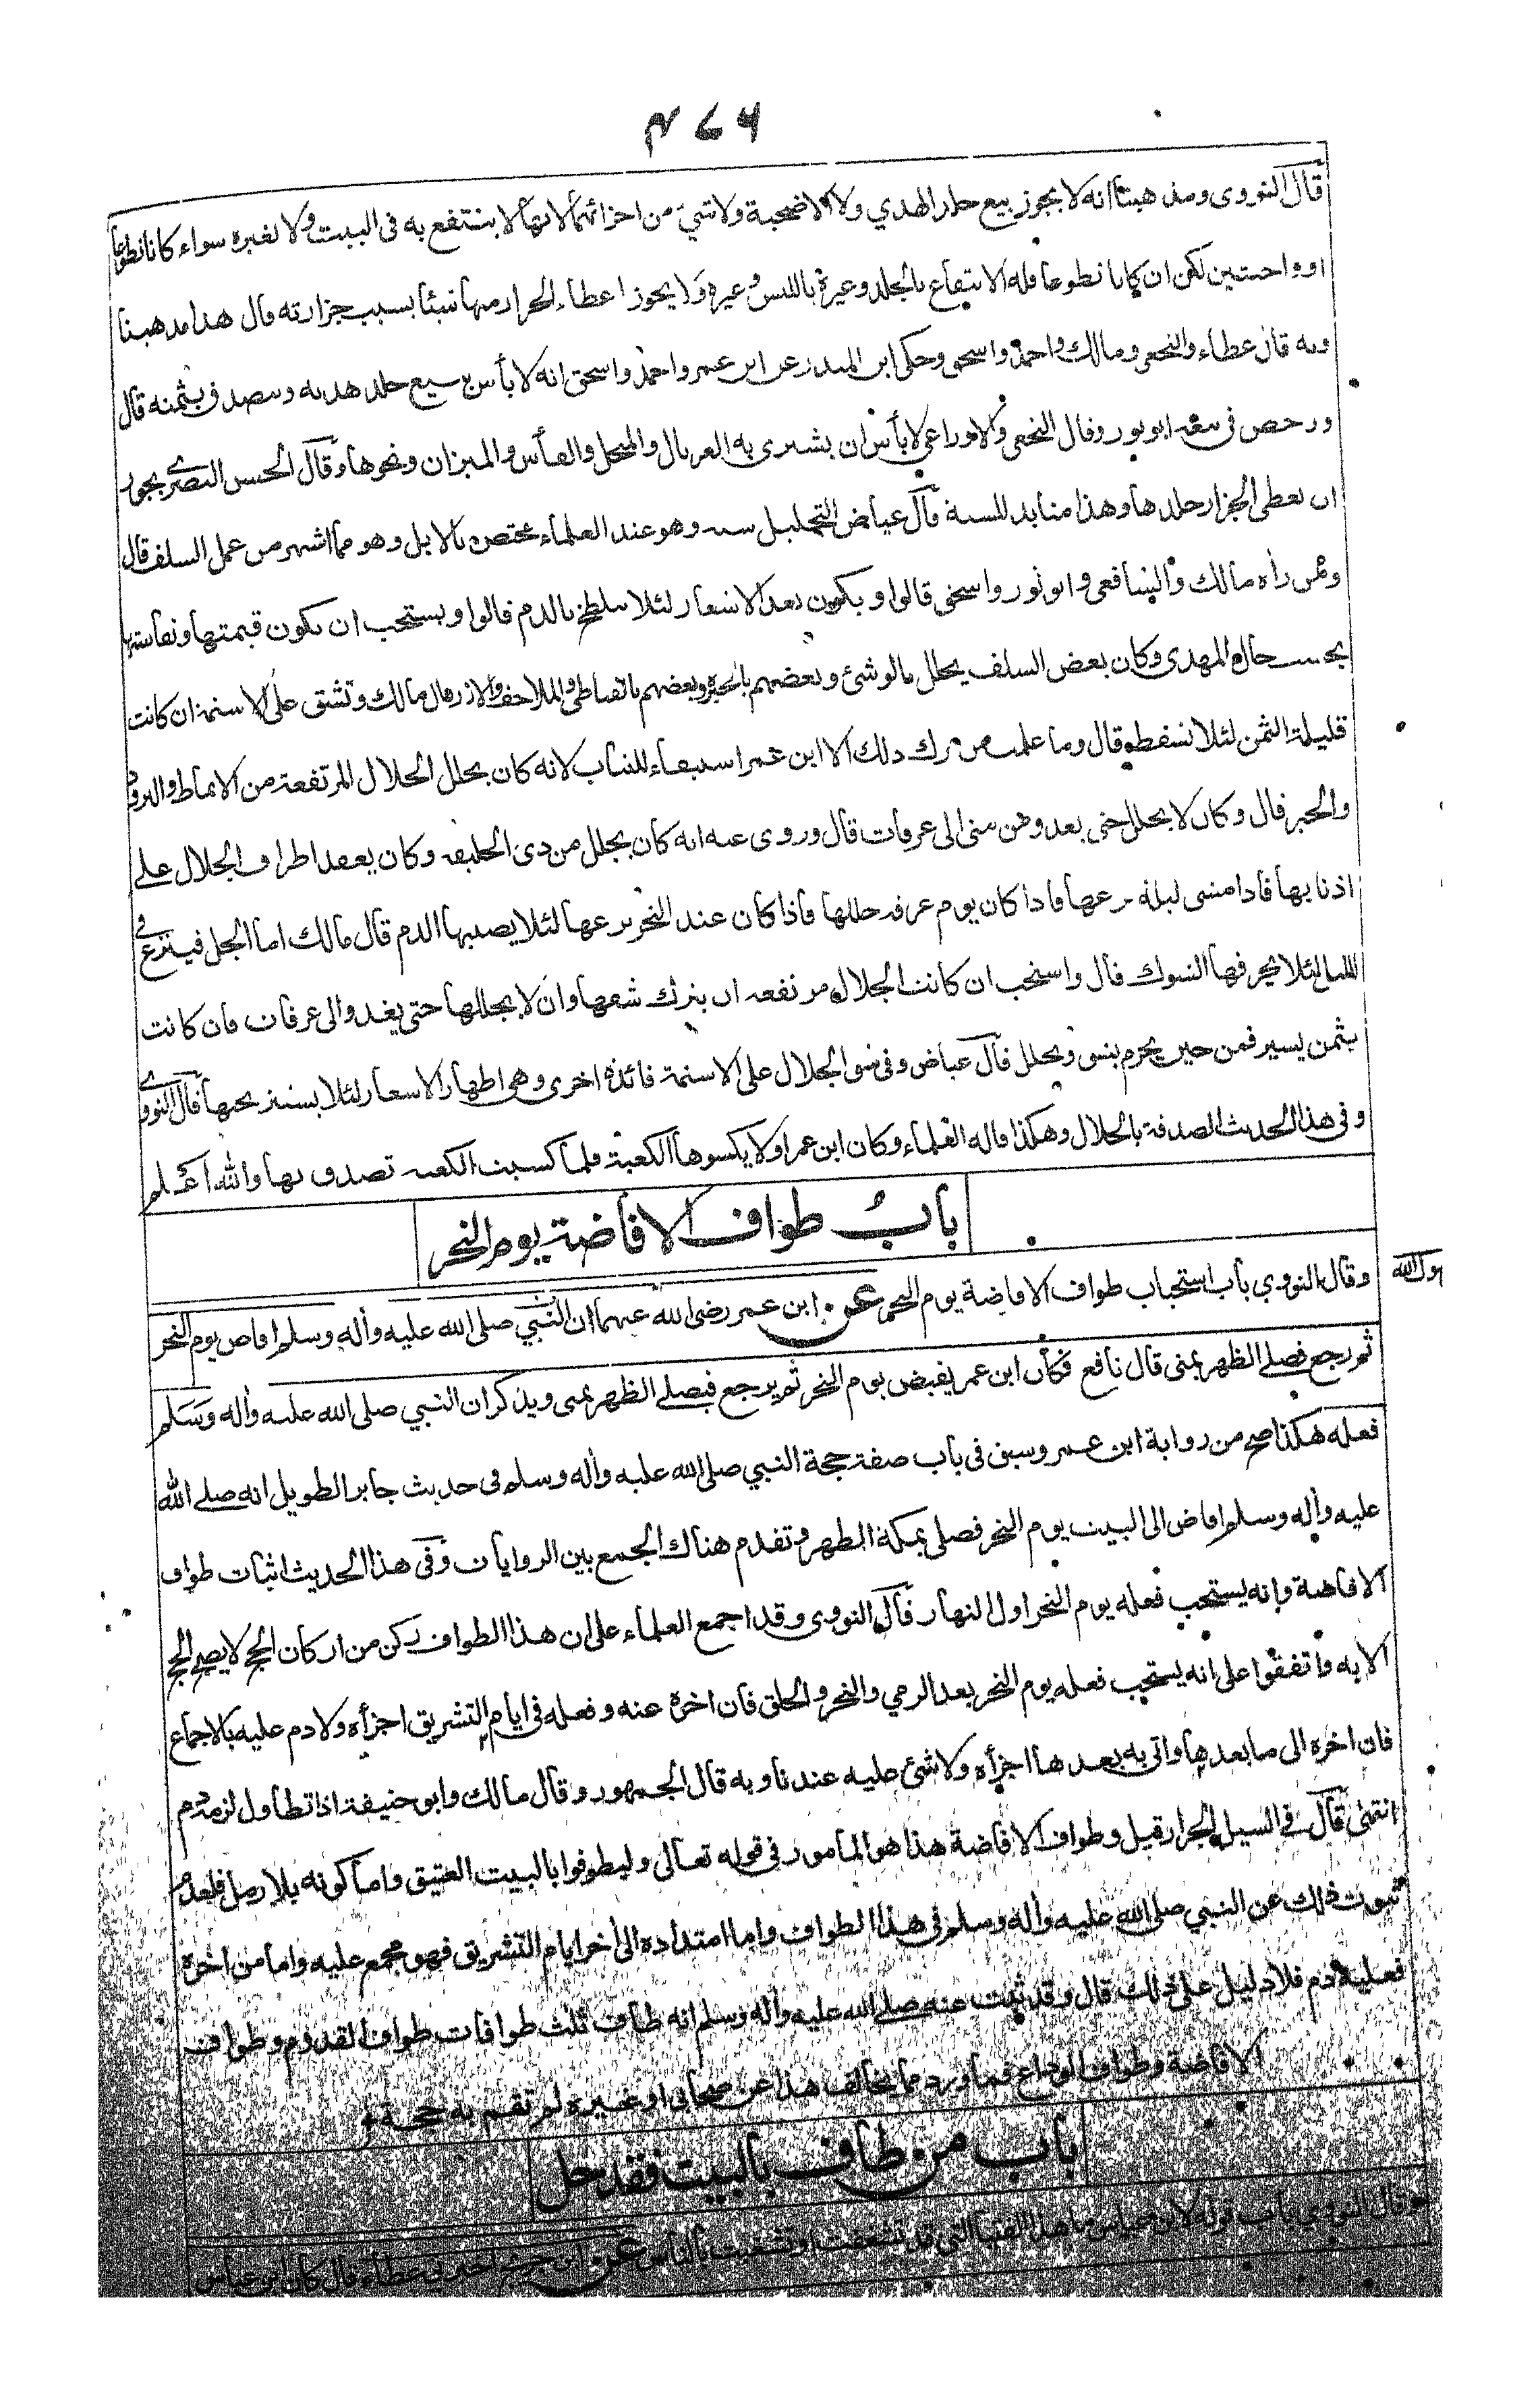 ٤٧٦
قال النووي ومذهبنا انه لا يجوز بيع جلد الهدي ولا الاضحية ولا شيء من اجزائهما لانها لا ينتفع به فى البيت ولا لغيره سواء كانا تطوعا
او واجبتين لكن ان كانا تطوعا فله الانتفاع بالجلد وغيره باللبس وغيره ولا يجوز اعطاء الجزار منها شيئا بسبب جزارته قال هذا مذهبنا
وبه قال عطاء والنخعى ومالك واحمد واسحق وحكى ابن المنذر عن ابن عمر واحمد واسحق انه لا بأس ببيع جلد هديه ويتصدق بثمنه قال
ورخص فى بيعه ابو ثور وقال النخعى والاوزاعى لا بأس ان يشترى به الغربال والمنخل والفأس والميزان ونحوها وقال الحسن البصرى يجوز
ان يعطى الجزار جلدها وهذا منابذ للسنة قال عياض التجليل سنة وهو عند العلماء مختص بالابل وهو مما اشتهر من عمل السلف قال
وممن رأه مالك والشافعى وابو ثور واسحق قالوا ويكون بعد الاشعار لئلا يتلطخ بالدم قالوا ويستحب ان تكون قيمتها ونفاستها
بحسب حال المهدى وكان بعض السلف يجلل بالوشئ وبعضهم بالحبرة وبعضهم بالقباطى والملاحف والازر قال مالك وتشق على الاسنمة ان كانت
قليلة الثمن لئلا تسقط قال وما علمت من ترك ذلك الا ابن عمر استبقاء للثياب لانه كان يجلل الجلال المرتفعة من الانماط والبرود
والحبر قال وكان لا يجلل حتى يغدو من منى الى عرفات قال وروى عنه انه كان يجلل من ذى الحليفة وكان يعقد اطراف الجلال على
اذنابها فاذا مشى ليلة نزعها فاذا كان يوم عرفة جللها فاذا كان عند النحر نزعها لئلا يصيبها الدم قال مالك اما الجل فينزع فى
الليل لئلا يخرقها الشوك قال واستحب ان كانت الجلال مرتفعة ان يترك شقها وان لا يجللها حتى يغدو الى عرفات فان كانت
بثمن يسير فمن حين يحرم يشق ويجلل قال عياض وفى شق الجلال على الاسنمة فائدة اخرى وهى اظهار الاشعار لئلا يستتر تحتها قال النووى
وفى هذا الحديث الصدقة بالجلال وهكذا قاله العلماء وكان ابن عمر اولا يكسوها الكعبة فلما كسيت الكعبة تصدق بها والله اعلم
باب طواف الافاضة يوم النحر
وقال النووي باب استحباب طواف الافاضة يوم النحر عن ابن عمر رضى الله عنهما ان النبي صلى الله عليه وأله وسلم افاض يوم النحر
ثم رجع فصلى الظهر بمنى قال نافع فكان ابن عمر يفيض يوم النحر ثم يرجع فيصلى الظهر بمنى ويذكر ان النبي صلى الله عليه وأله وسلم
فعله هكذا صح من رواية ابن عمر وسبق فى باب صفة حجة النبي صلى الله عليه وأله وسلم فى حديث جابر الطويل انه صلى الله
عليه وأله وسلم افاض الى البيت يوم النحر فصلى بمكة الظهر وتقدم هناك الجمع بين الروايات وفى هذا الحديث اثبات طواف
الافاضة وانه يستحب فعله يوم النحر اول النهار قال النووى وقد اجمع العلماء على ان هذا الطواف ركن من اركان الحج لا يصح الحج
الا به واتفقوا على انه يستحب فعله يوم النحر بعد الرمي والنحر والحلق فان اخره عنه وفعله فى ايام التشريق اجزأه ولا دم عليه بالاجماع
فان اخره الى ما بعدها واتى به بعدها اجزأه ولا شئ عليه عندنا وبه قال الجمهور وقال مالك وابو حنيفة اذا تطاول لزمه دم
انتهى قال فى السيل الجرار قيل وطواف الافاضة هذا هو المأمور فى قوله تعالى وليطوفوا بالبيت العتيق واما كونه بلا رمل فلعدم
ثبوت ذلك عن النبي صلى الله عليه وأله وسلم فى هذا الطواف واما امتداده الى أخر ايام التشريق فهو مجمع عليه واما من اخره
فعليه دم فلا دليل على ذلك قال وقد ثبت عنه صلى الله عليه وأله وسلم انه طاف ثلث طوافات طواف القدوم وطواف
الافاضة وطواف الوداع فما ورد مما يخالف هذا عن صحابى او غيره لم تقم به حجة
باب من طاف بالبيت فقد حل
وقال النووي باب قوله لابن عباس ما هذا الفتيا التى قد تشغفت او تشغبت بالناس عن ابن جريج اخبرنى عطاء قال كان ابن عباس